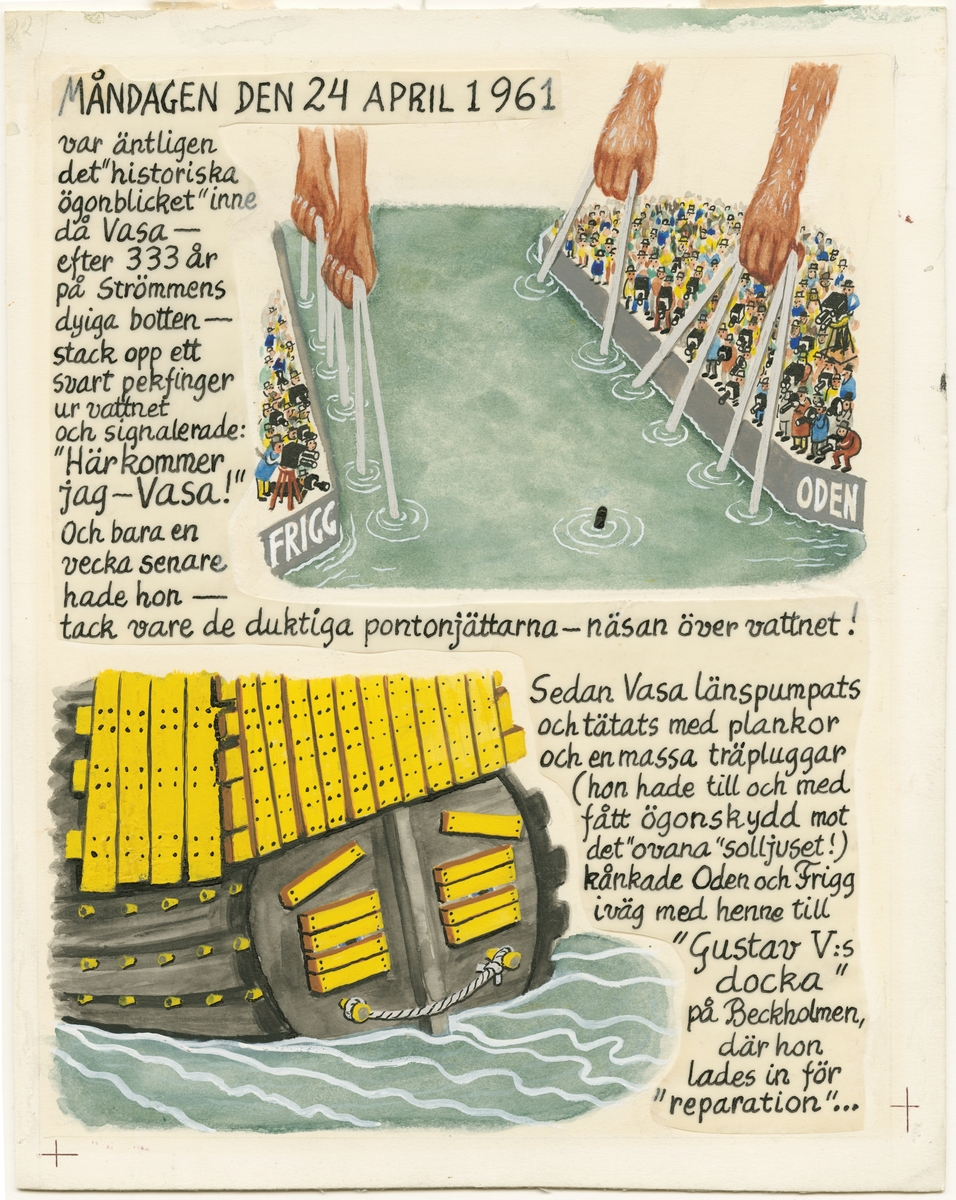 MÅNDAGEN DEN 24 APRIL 1961
var äntligen
det "historiska
ögonblicket" inne
då Vasa —
efter 333 år
på Strömmens
dyiga botten —
stack opp ett
svart pekfinger
ur vattnet
och signalerade:
"Här kommer
jag – Vasa!"
Och bara en
vecka senare
hade hon —
tack vare de duktiga pontonjättarna – näsan över vattnet!
FRIGG
ODEN
Sedan Vasa länspumpats
och tätats med plankor
och en massa träpluggar
(hon hade till och med
fått ögonskydd mot
det "ovana" solljuset!)
kånkade Oden och Frigg
iväg med henne till
"Gustav V:s
docka"
på Beckholmen,
där hon
lades in för
"reparation"...